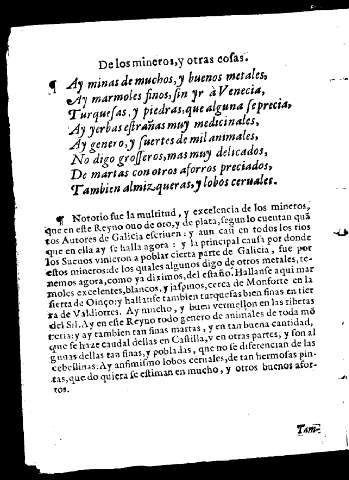 De los mineros, y otras cosas.
¶ Ay minas de muchos, y buenos metales,
Ay marmoles finos, sin yr à Venecia,
Turquesas, y piedras, que alguna se precia,
Ay yerbas estrañas muy medicinales,
Ay genero, y suertes de mil animales,
No digo grosseros, mas muy delicados,
De martas con otros aforros preciados,
Tambien almizqueras, y lobos ceruales.
¶ Notorio fue la multitud, y excelencia de los mineros,
que en este Reyno ouo de oro, y de plata, segun lo cuentan quã
tos Autores de Galicia escriuen: y aun casi en todos los rios
que en ella ay se halla agora: y la principal causa por donde
los Sueuos vinieron a poblar cierta parte de Galicia, fue por
estos mineros: de los quales algunos digo de otros metales, te-
nemos agora, como ya diximos, del estaño. Hallanse aqui mar
moles excelentes, blancos, y jaspinos, cerca de Monforte en la
sierra de Oinço: y hallanse tambien turquesas bien finas en tier
ra de Valdiorres. Ay mucho, y buen vermellon en las riberas
del Sil. Ay en este Reyno todo genero de animales de toda mõ
teria: y ay tambien tan finas martas, y en tan buena cantidad,
que se haze caudal dellas en Castilla, y en otras partes, y son al
gunas dellas tan finas, y pobladas, que no se diferencian de las
cebellinas. Ay ansimismo lobos ceruales, de tan hermosas pin-
tas, que do quiera se estiman en mucho, y otros buenos afor-
ros.
Tam-